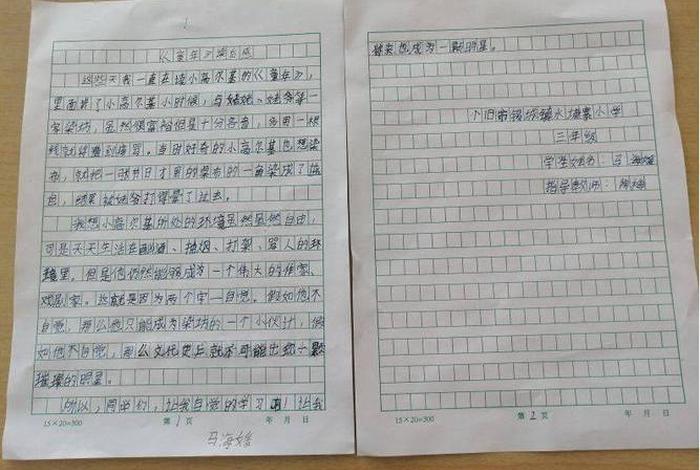 《童年》读后感
这些天我一直在读小高尔基的《童年》，
里面讲了小高尔基小时候，与姥姥、姥爷等一
家染坊，虽然很富裕但是十分吝啬，多用一根
线就算看到遭骂。当时好奇的小高尔基也想染
布，就把一张节日才用的桌布的一角染成了蓝
色，结果被姥爷打得晕了过去。
我想小高尔基所处的环境虽然虽然自由，
可是天天生活在酗酒、抽烟、打架、骂人的环
境里。但是他仍然能够成为一个伟大的作家、
戏剧家。这就是因为两个字—自觉。假如他不
自觉，那么他只能成为染坊的一个小伙计，假
如他不自觉，那么文化史上就不可能出现一颗
璀璨的明星。
所以，同学们，让我自觉的学习啊！让我
15×20=300 第1页 年 月 日
马海
将来也成为一颗明星。
个旧市锡城镇水塘寨小学
三年级
学生姓名：马海
指导教师：
15×20=300 第2页 年 月 日